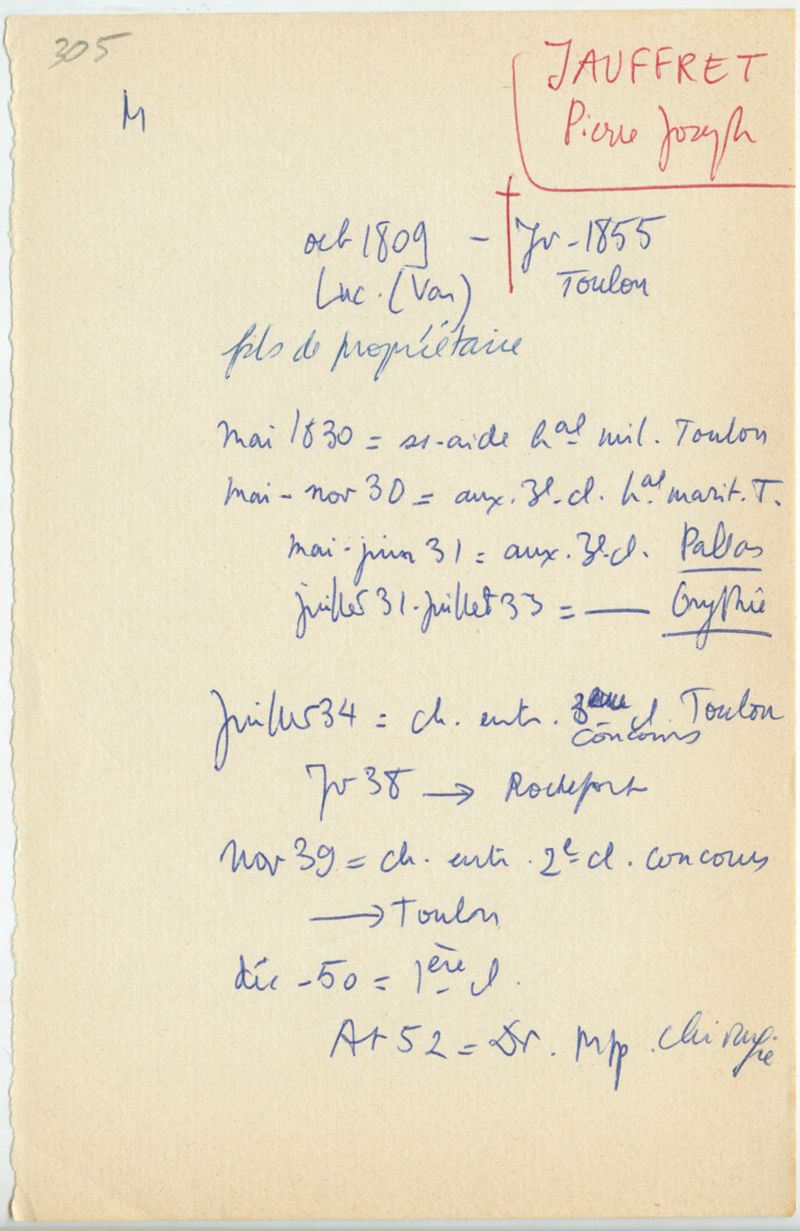 305
M
JAUFFRET
Pierre Joseph
oct 1809 - † Jv - 1855
Luc. (Var) Toulon
fils de propriétaire
mai 1830 = ss-aide hal mil. Toulon
mai - nov 30 = aux. 3e cl. hal marit. T.
mai - juin 31 = aux. 3e cl. Pallas
juillet 31 - juillet 33 = —
Juillet 34 = ch. entr. 3eme cl. Toulon
concours
Jv 38 → Rochefort
nov 39 = ch. entr. 2e cl. concours
→ Toulon
déc - 50 = 1ère cl.
At 52 = Dr. Mpp. chirurgie